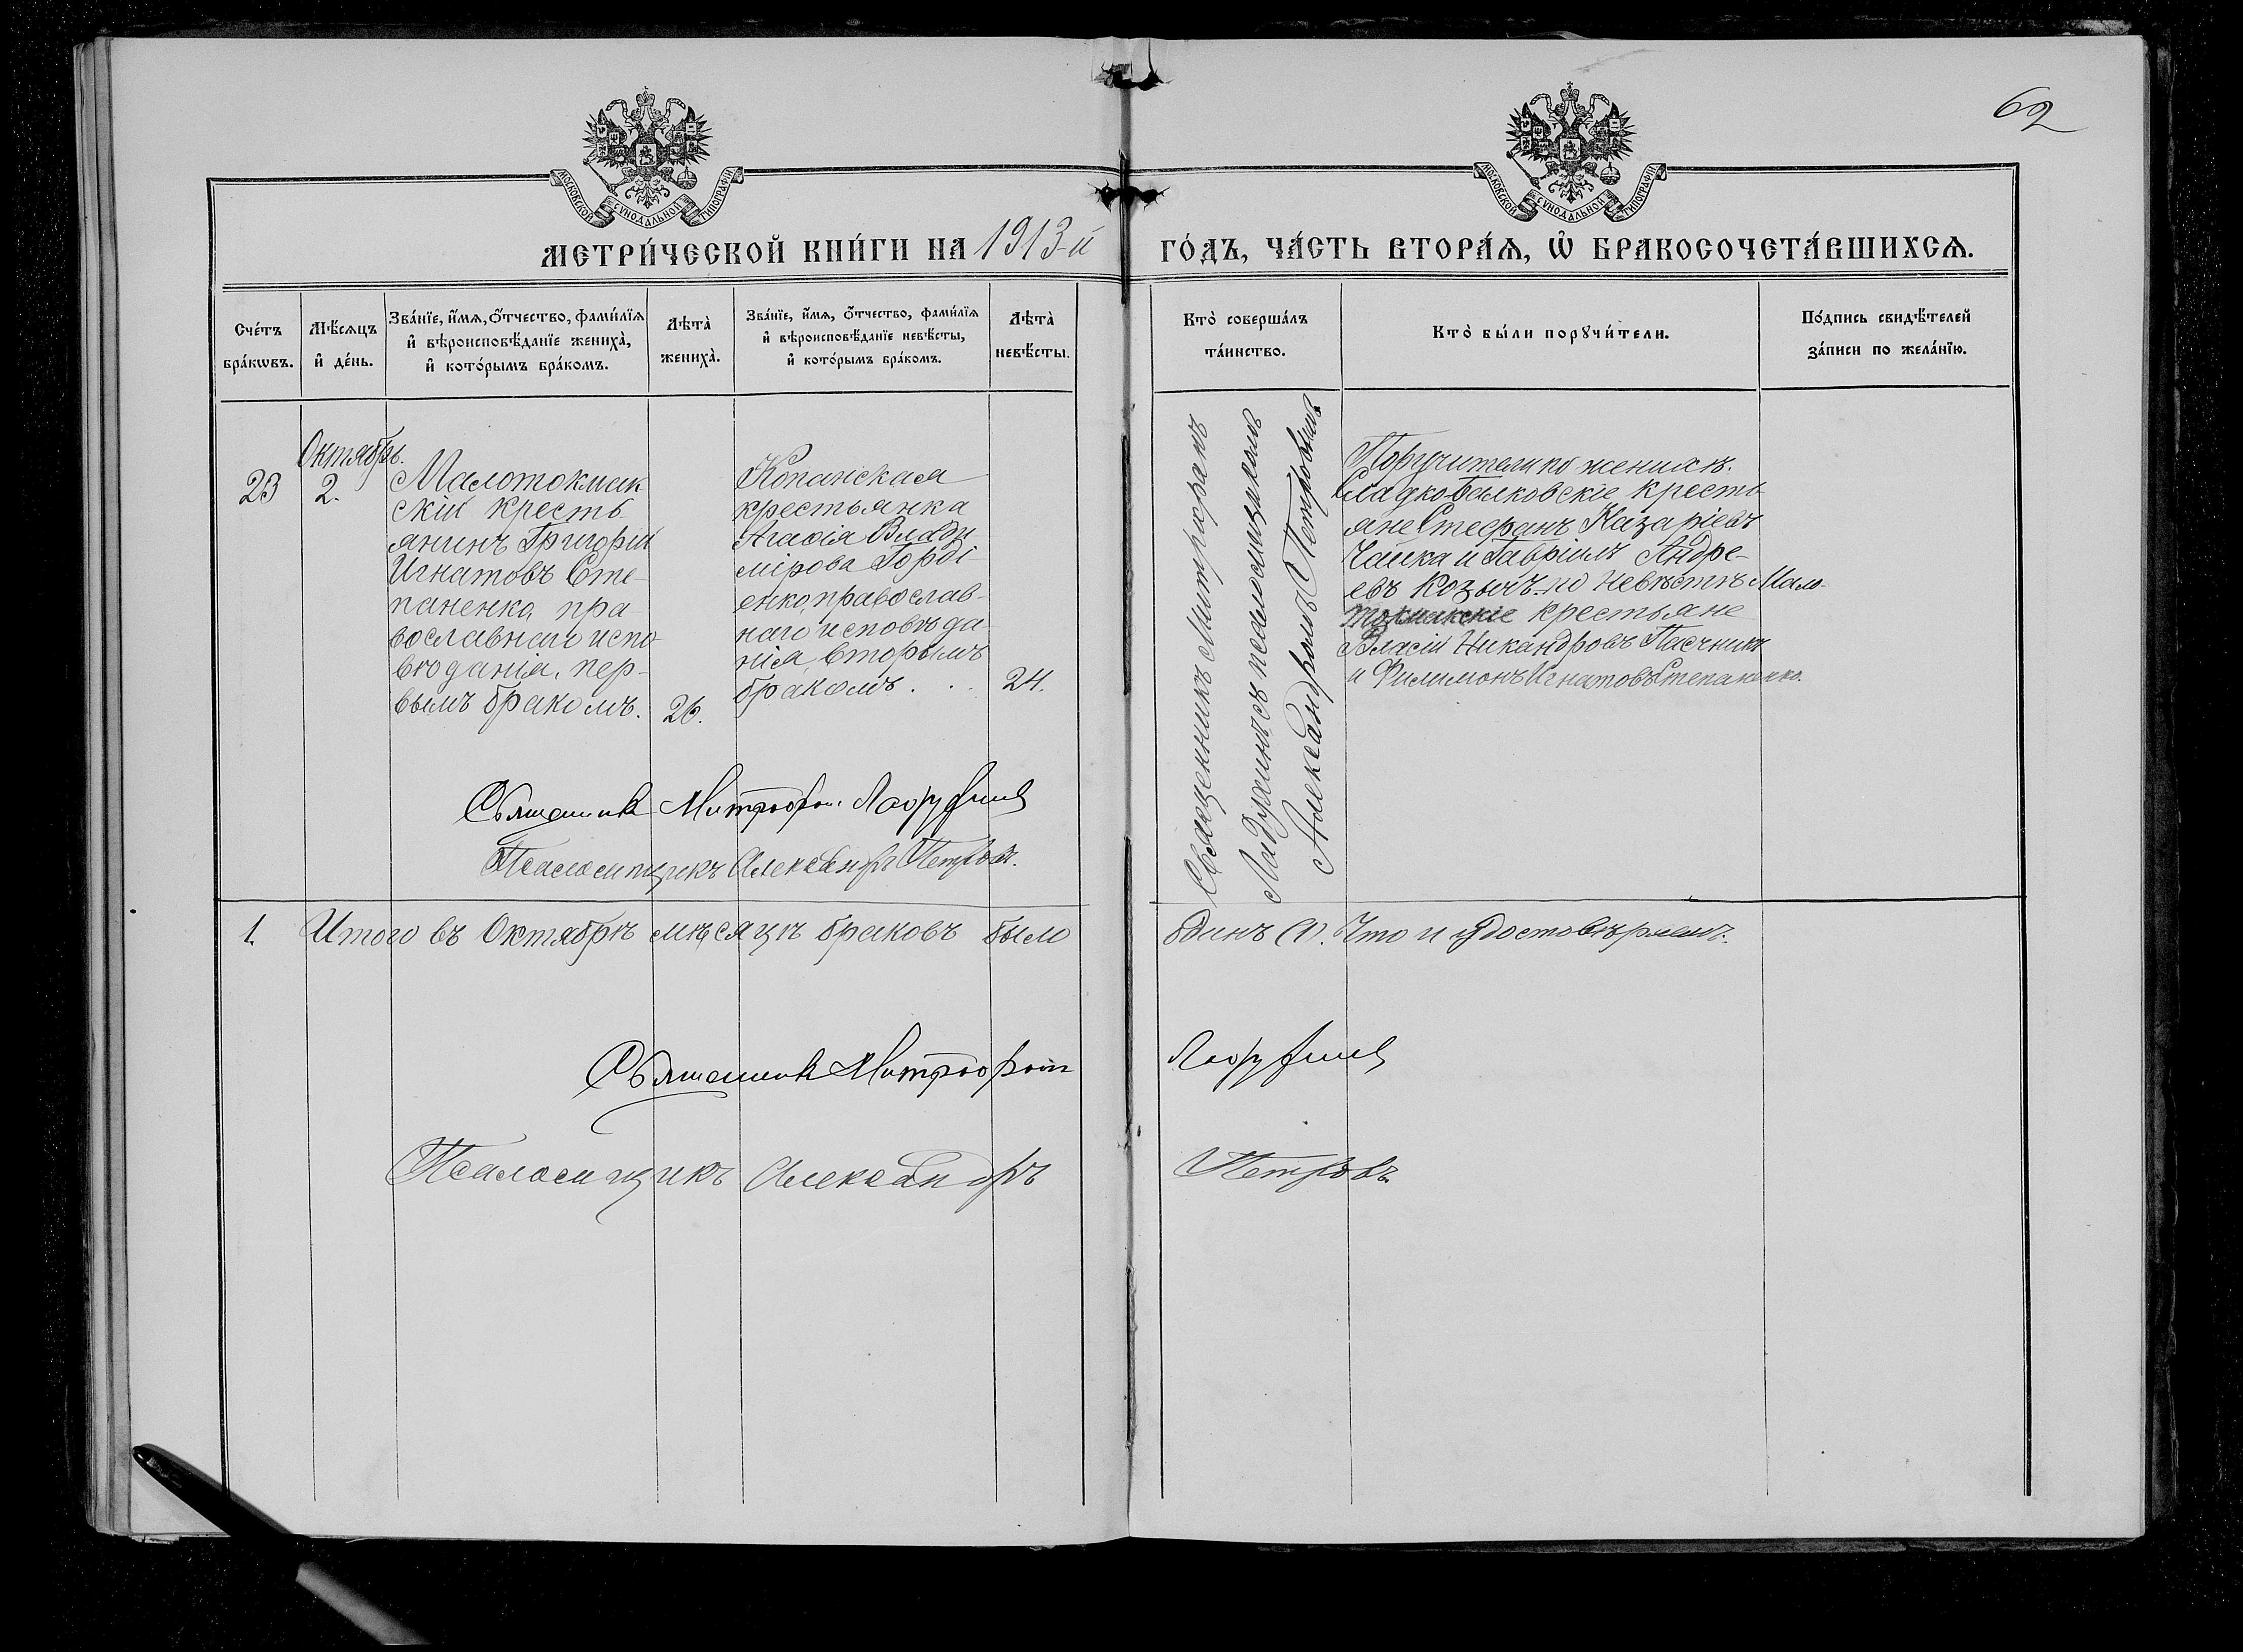 62
МОСКОВСКОЙ СѴНОДАЛЬНОЙ ТИПОГРАФІИ
МОСКОВСКОЙ СѴНОДАЛЬНОЙ ТИПОГРАФІИ
МЕТРИ́ЧЕСКОЙ КНИ́ГИ НА 1913-й ГО́ДЪ, ЧА́СТЬ ВТОРА́Ѧ, Ѽ БРАКОСОЧЕТА́ВШИХСѦ.
Сче́тъ
бра́кѡвъ.
Мѣ́сѧцъ
и҆ де́нь.
Зва́нїе, и҆́мѧ, ѻ҆́тчество, фами́лїѧ
и҆ вѣроисповѣ́данїе жениха̀,
и҆ кото́рымъ бра́комъ.
Лѣта̀
жениха̀.
Зва́нїе, и҆́мѧ, ѻ҆́тчество, фами́лїѧ
и҆ вѣроисповѣ́данїе невѣ́сты,
и҆ кото́рымъ бра́комъ.
Лѣта̀
невѣ́сты.
Кто̀ соверша́лъ
та́инство.
Кто̀ бы́ли порꙋчи́тели.
По́дпись свидѣ́телей
за́писи по жела́нїю.
23
Октябрь.
2.
Малотокмак
скій кресть
янинъ Григорій
Игнатовъ Сте-
паненко, пра
вославнаго испо
вѣданія, пер-
вымъ бракомъ.
26.
Копанская
крестьянка
Агафія Влади
мірова Горді
енко, православ-
наго исповѣда-
нія, вторымъ
бракомъ . . .
24.
Священникъ Митрофанъ
съ псаломщикомъ
Александромъ Петровымъ
Поручители по женихѣ.
Сладкобалковскіе кресть
яне Стефанъ Назаріевъ
Чайка и Гавріилъ Андре-
евъ Козычъ. по невѣстѣ Мало-
токмакскіе крестьяне
Власій Никандровъ Пасчникъ
и Филимонъ Игнатовъ Степаненко.
Священникъ Митрофанъ
Псаломщикъ Александръ Петровъ.
1. Итого въ Октябрѣ мѣсяцѣ браковъ было одинъ (1). Что и удостовѣряемъ.
Священникъ Митрофанъ
Псаломщикъ Александръ Петровъ.